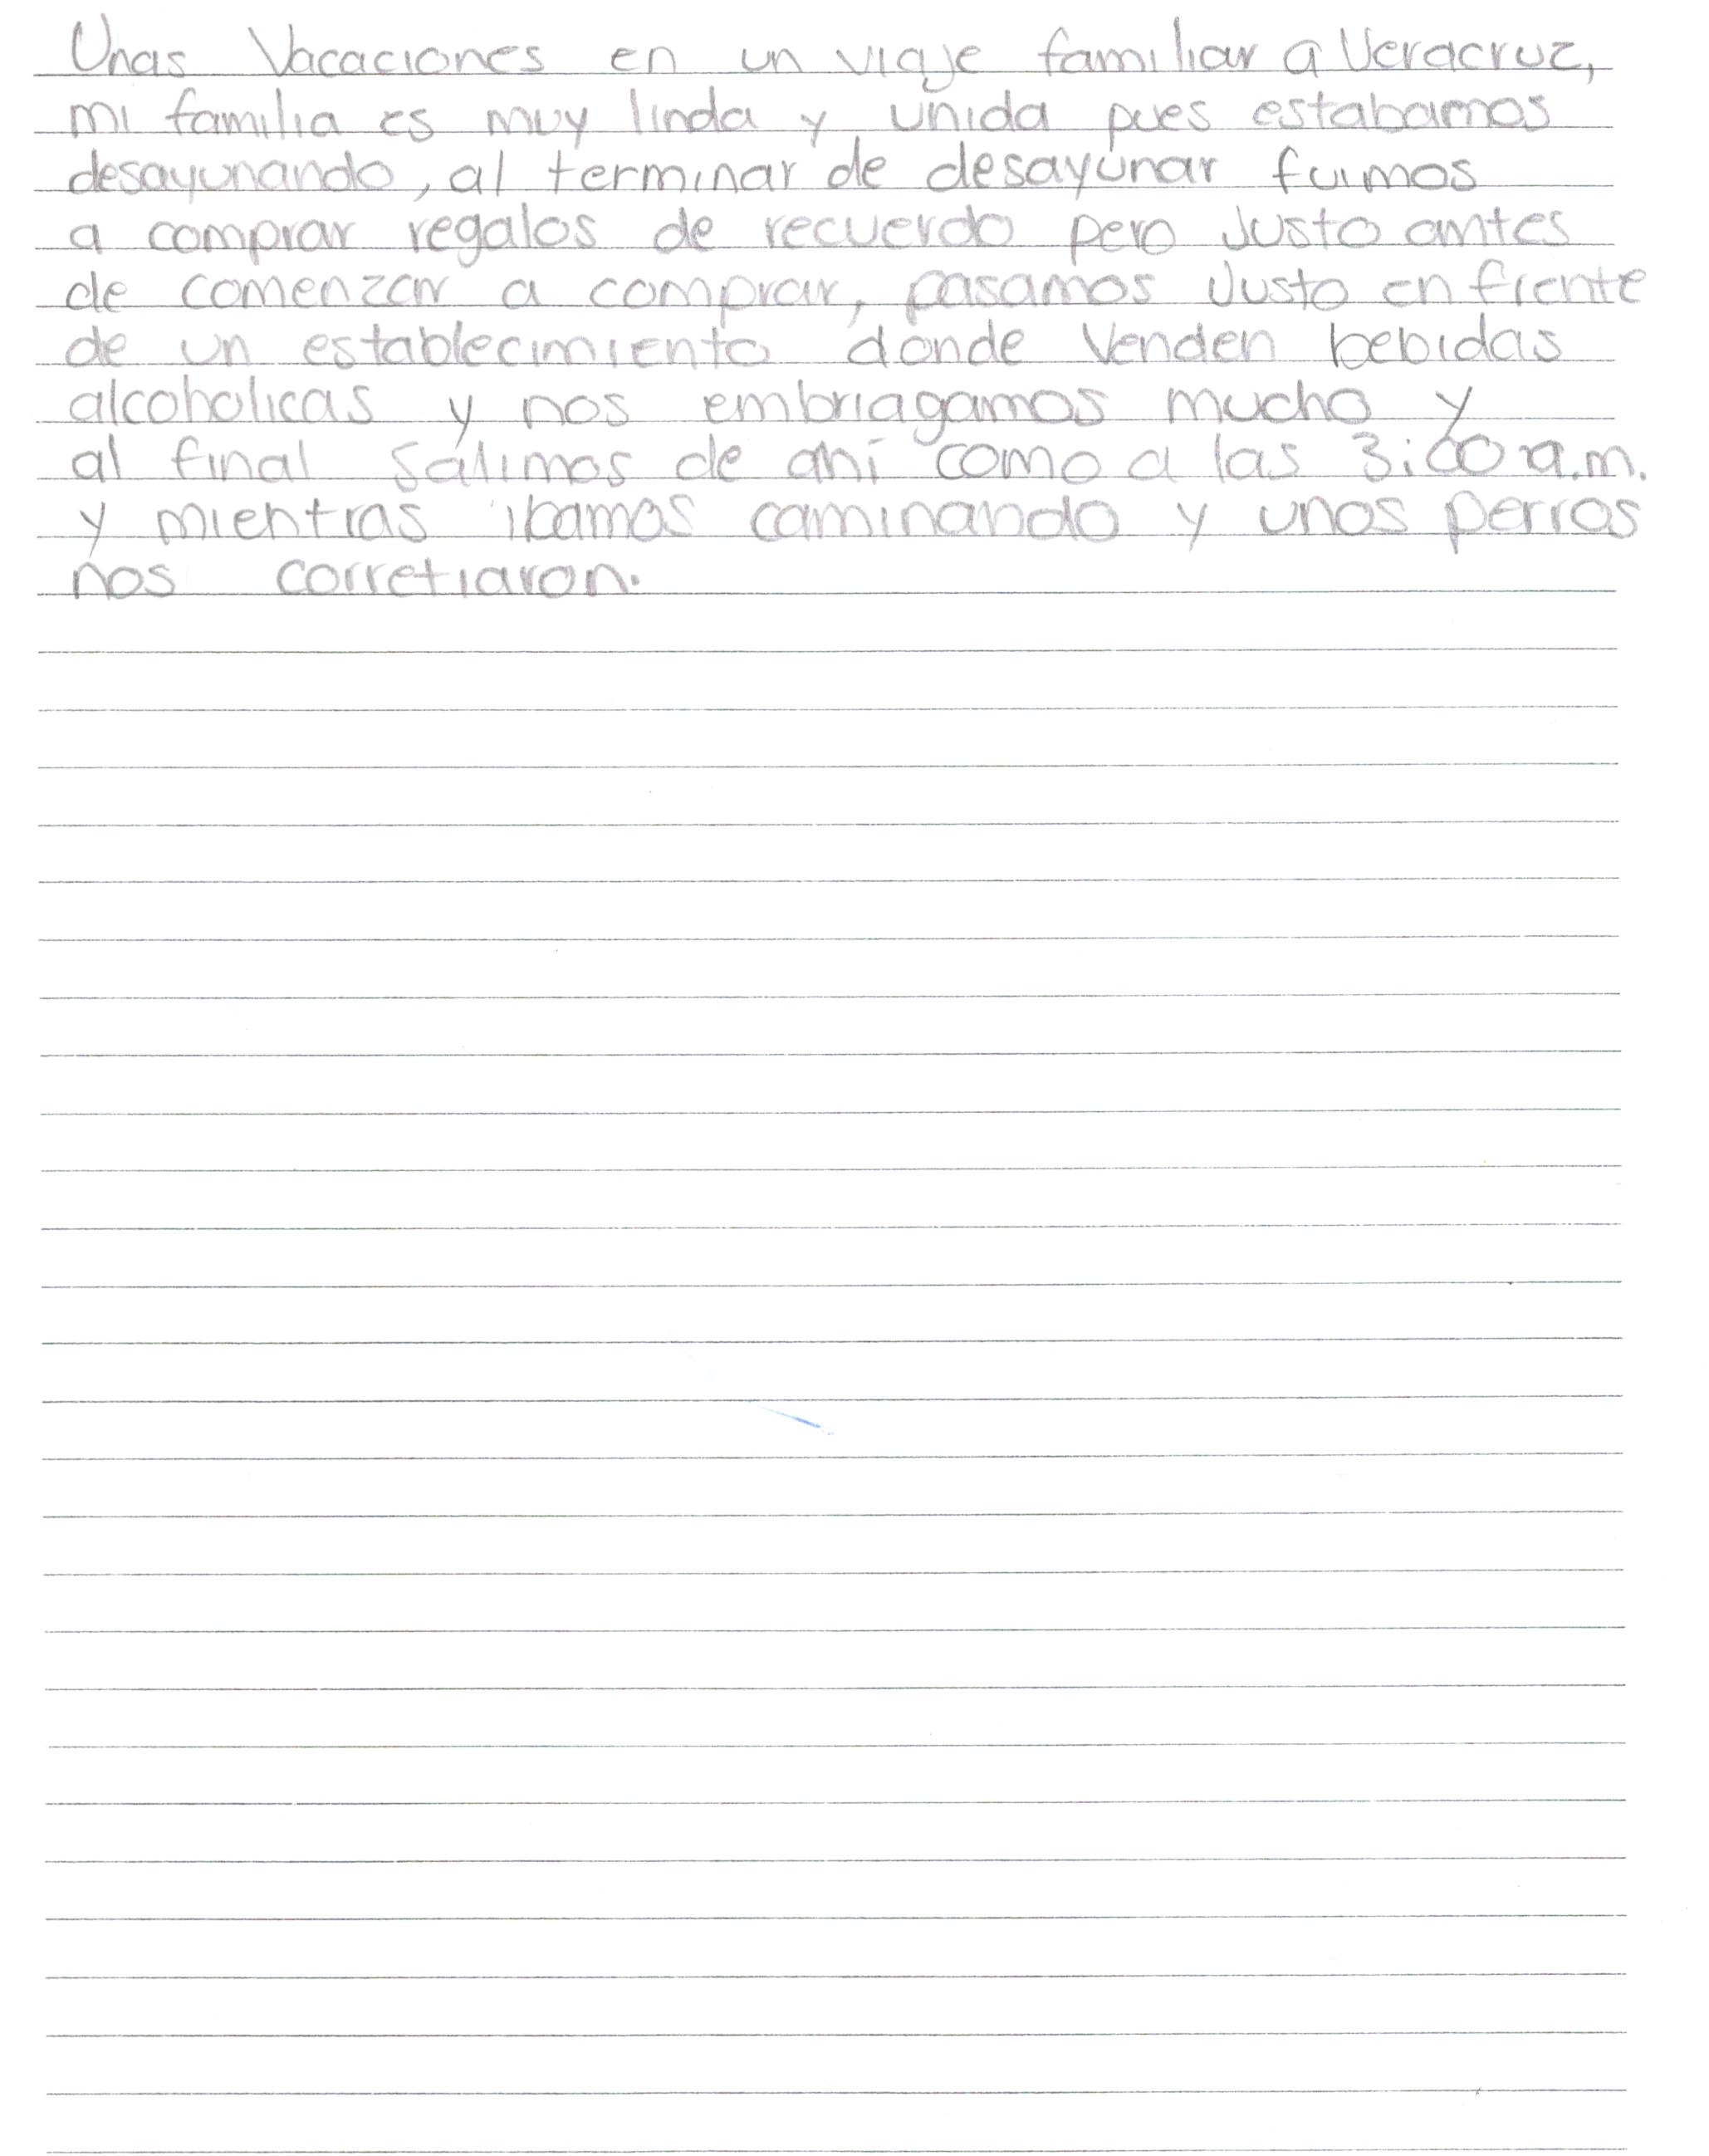 Unas Vacaciones en un viaje familiar a Veracruz,
mi familia es muy linda y unida pues estabamos
desayunando, al terminar de desayunar fuimos
a comprar regalos de recuerdo pero Justo antes
de comenzar a comprar, pasamos Justo en frente
de un establecimiento donde Venden bebidas
alcoholicas y nos embriagamos mucho y
al final salimos de ahí como a las 3:00 a.m.
y mientras ibamos caminando y unos perros
nos corretiaron.